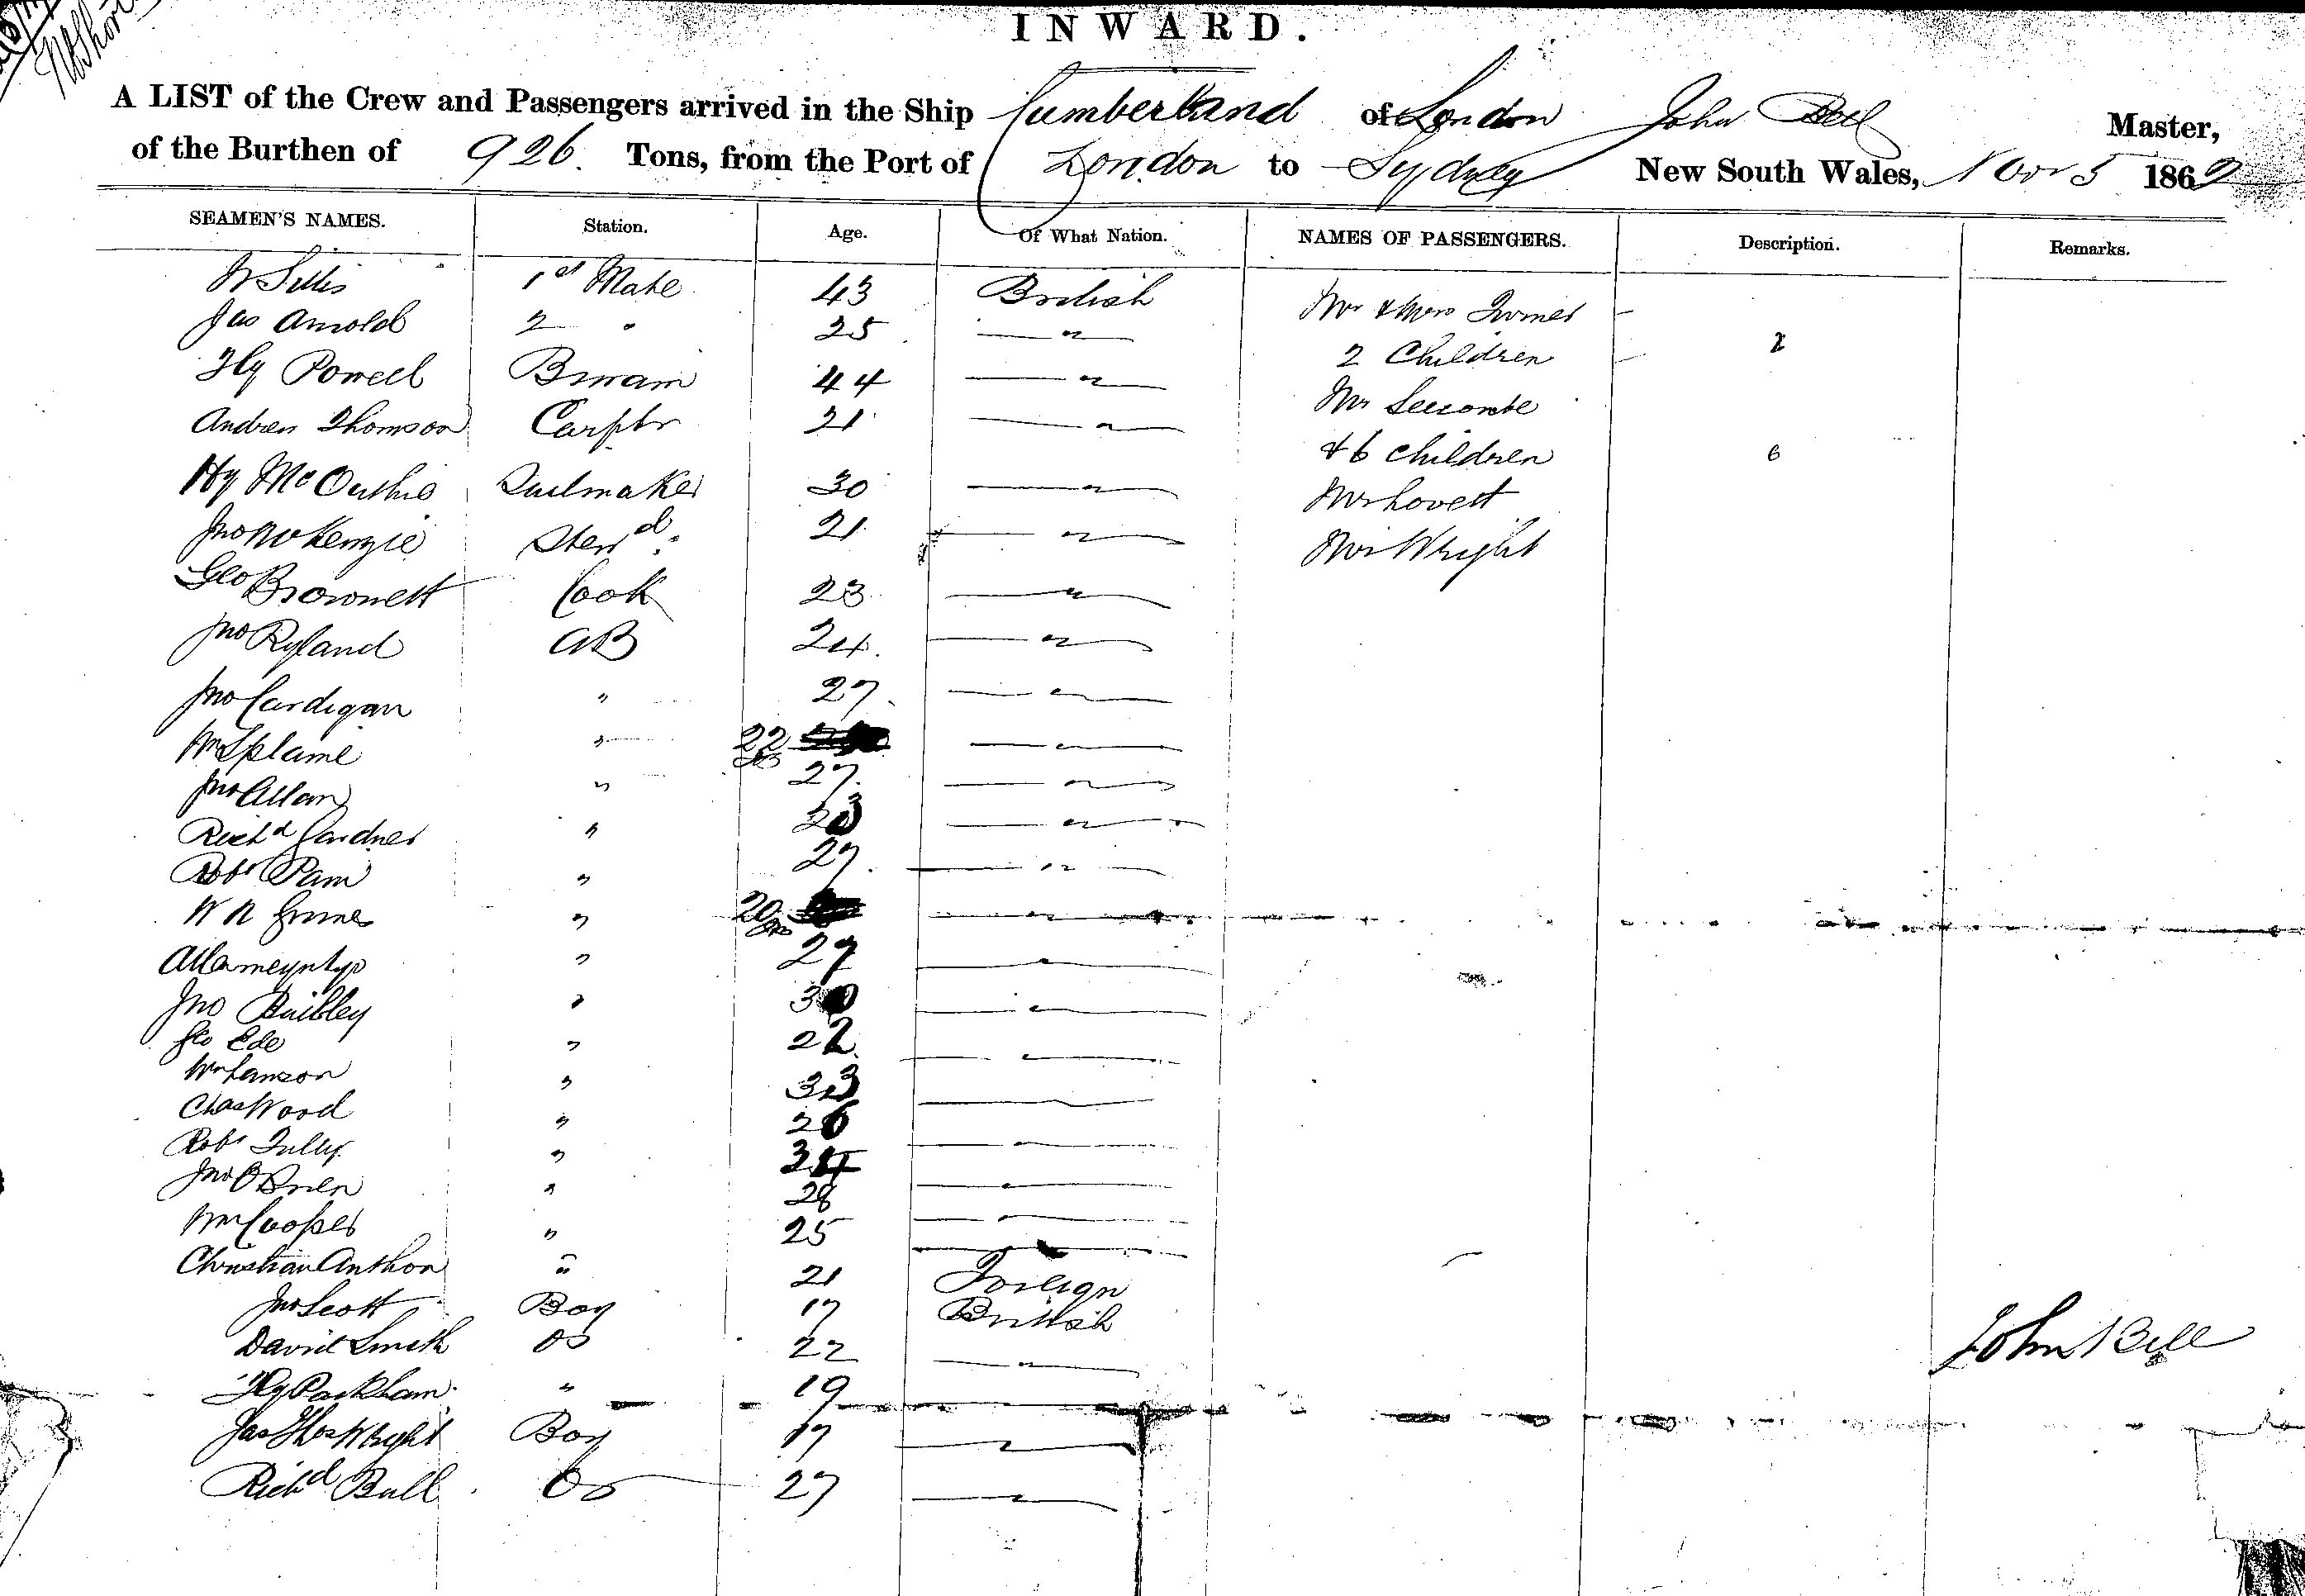 INWARD.
A LIST of the Crew and Passengers arrived in the Ship Cumberland of London John Bell Master,
of the Burthen of 926. Tons, from the Port of London to Sydney New South Wales, Novr 5 1862
SEAMEN'S NAMES. Station. Age. Of What Nation. NAMES OF PASSENGERS. Description. Remarks.
1st Mate 43 British Mr & Mrs Turner
Jas Arnold 2 " 25 " 2 Children 2
Hy Powell Bswain 44 " Mr Seccombe
Andrew Thomson Carptr 21 " & 6 Children 6
Hy Mc Sailmaker 30 " Lovett
Jno McKenzie Stewd. 21 " Wright
Geo Brownett Cook 23 "
Jno Ryland AB 24. "
Jno Cardigan " 27 "
Wm Splaine " 22 "
Jno Allan " 27. "
Richd Gardner " 23 "
Robt Pam " 27. "
W N " 20 "
" 27 "
Jno " 30 "
Geo Ede " 22 "
Wm Lamson " 33
Chas Wood " 26 "
Robt Tully " "
Jno OBrien " 28 "
Wm Cooper " 25
Christian Anthon " 21 Foreign
Jno Scott Boy 17 British
David Smith OS 22 " John Bell
Hy Packham " 19
Jas Thos Wright Boy 17 "
Richd Bull OS 27 "